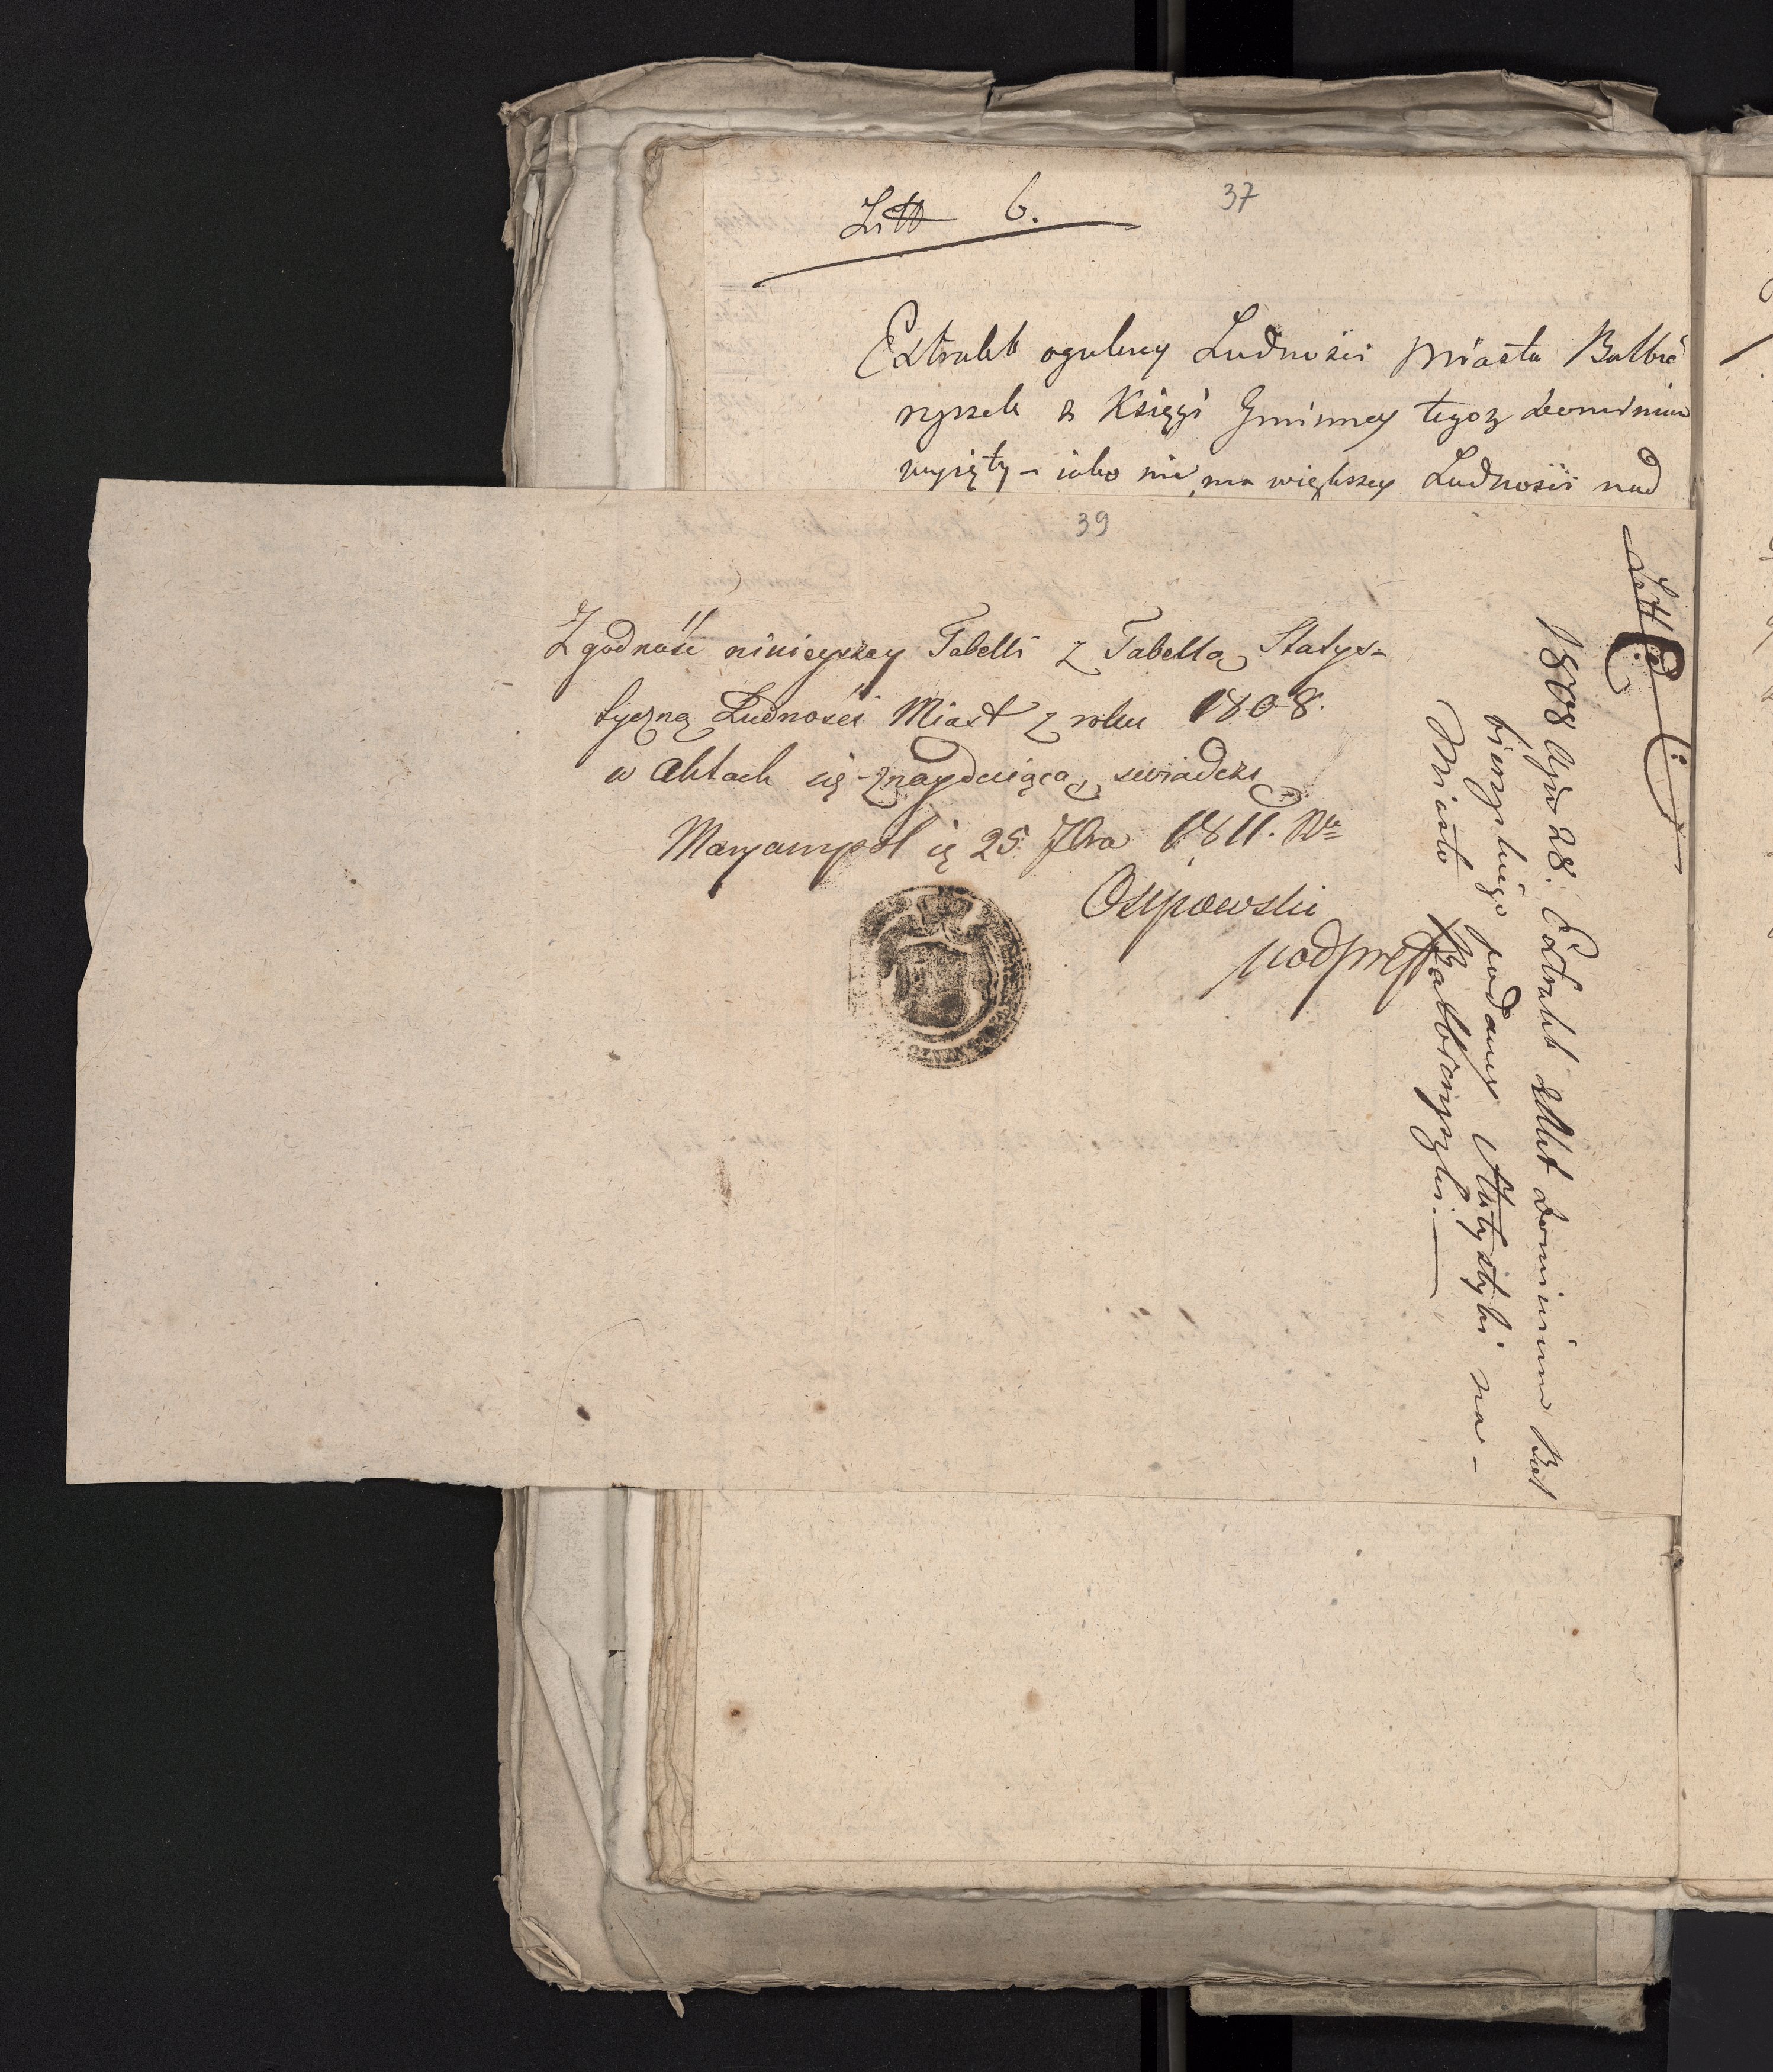 37
Litt b.
Extrakt ogulny Ludnosci Miasta Balbie
ryszek z Księgi Gminney tegoz dominium
wyięty – iako nie ma większey Ludnosci nad
39
Zgodność ninieyszey Tabelli z Tabellą Statys-
tyczną Ludności Miast z roku 1808.
w Aktach się znayduiącą swiadczę
Maryampol d 25 7bra 1811. Rku
Osipowski
podpreft
Litt C.
1808 Apr 28. Extrakt Dominium Bal
bierzyskiego podany Statystyki na –
Miasto Balbierzyszki. —